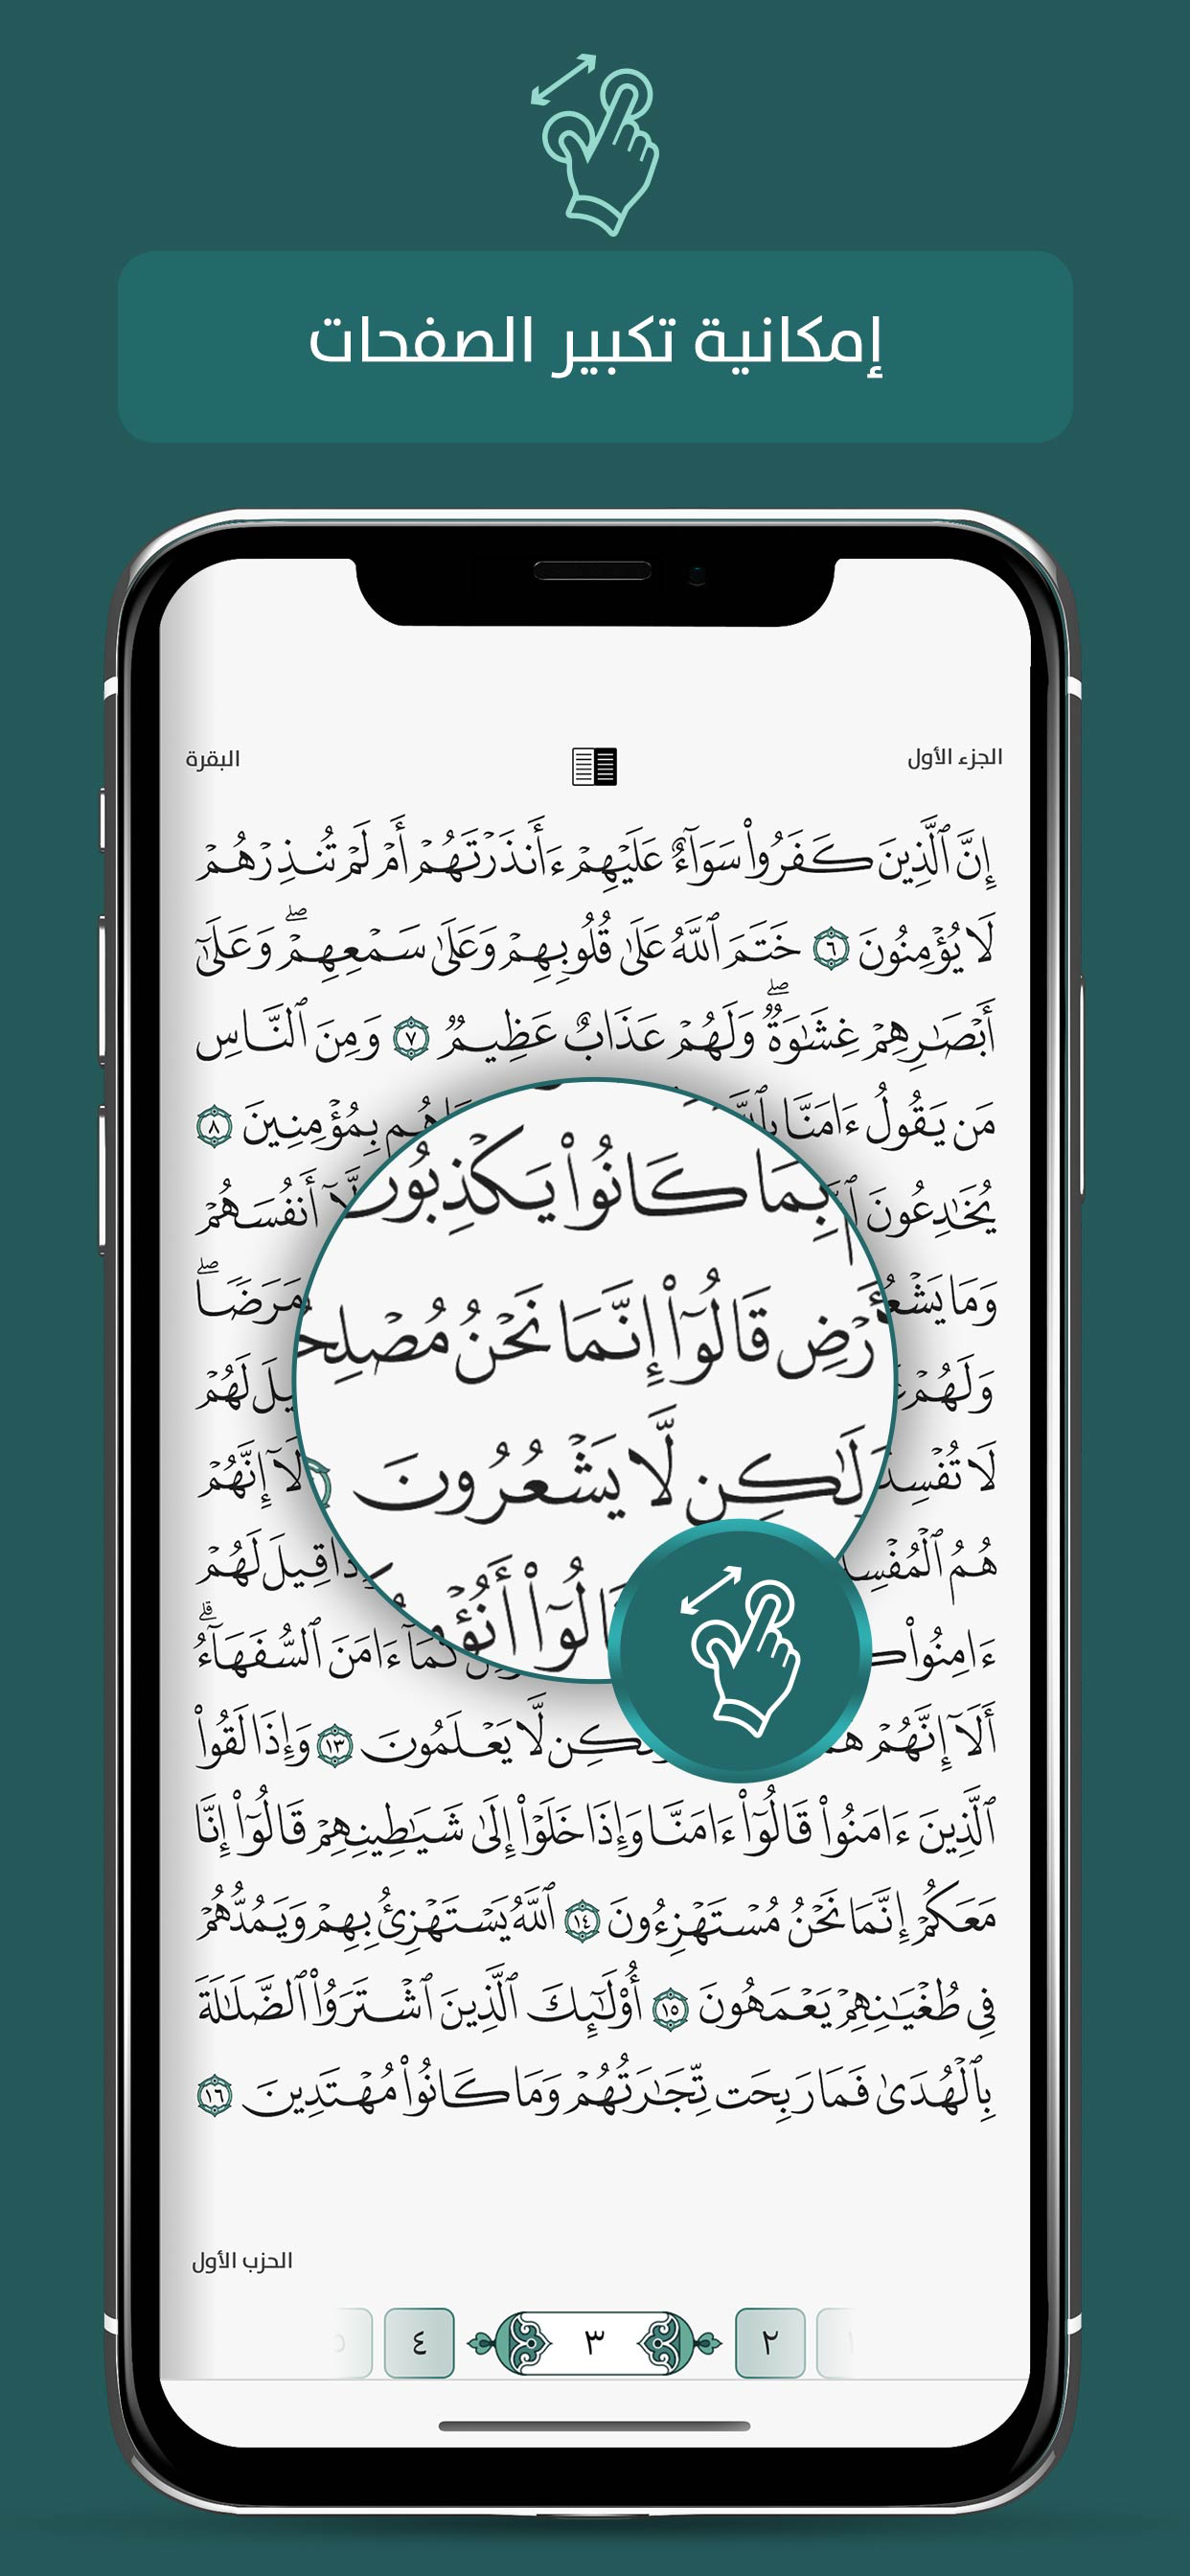 إمكانية تكبير الصفحات
الجزء الأول
البقرة
إِنَّ ٱلَّذِينَ كَفَرُواْ سَوَآءٌ عَلَيْهِمْ ءَأَنذَرْتَهُمْ أَمْ لَمْ تُنذِرْهُمْ
لَا يُؤْمِنُونَ ٦ خَتَمَ ٱللَّهُ عَلَىٰ قُلُوبِهِمْ وَعَلَىٰ سَمْعِهِمْۖ وَعَلَىٰٓ
أَبْصَٰرِهِمْ غِشَٰوَةٌۖ وَلَهُمْ عَذَابٌ عَظِيمٌ ٧ وَمِنَ ٱلنَّاسِ
مَن يَقُولُ ءَامَنَّا بِمُؤْمِنِينَ ٨
يُخَٰدِعُونَ أَنفُسَهُمْ
وَمَا يَشْعُ مَرَضًاۖ
وَلَهُمْ لَهُمْ
لَا تُفْسِد لَآ إِنَّهُمْ
هُمُ ٱلْمُفْسِ قِيلَ لَهُمْ
ءَامِنُواْ كَمَآ ءَامَنَ ٱلسُّفَهَآءُۗ
أَلَآ إِنَّهُمْ لَّا يَعْلَمُونَ ١٣ وَإِذَا لَقُواْ
ٱلَّذِينَ ءَامَنُواْ قَالُوٓاْ ءَامَنَّا وَإِذَا خَلَوْاْ إِلَىٰ شَيَٰطِينِهِمْ قَالُوٓاْ إِنَّا
مَعَكُمْ إِنَّمَا نَحْنُ مُسْتَهْزِءُونَ ١٤ ٱللَّهُ يَسْتَهْزِئُ بِهِمْ وَيَمُدُّهُمْ
فِي طُغْيَٰنِهِمْ يَعْمَهُونَ ١٥ أُوْلَٰٓئِكَ ٱلَّذِينَ ٱشْتَرَوُاْ ٱلضَّلَٰلَةَ
بِٱلْهُدَىٰ فَمَا رَبِحَت تِّجَٰرَتُهُمْ وَمَا كَانُواْ مُهْتَدِينَ ١٦
بِمَا كَانُواْ يَكْذِبُون
أَرْضِ قَالُوٓاْ إِنَّمَا نَحْنُ مُصْلِح
لَٰكِن لَّا يَشْعُرُونَ
قَالُوٓاْ أَنُؤْم
الحزب الأول
٢
٣
٤